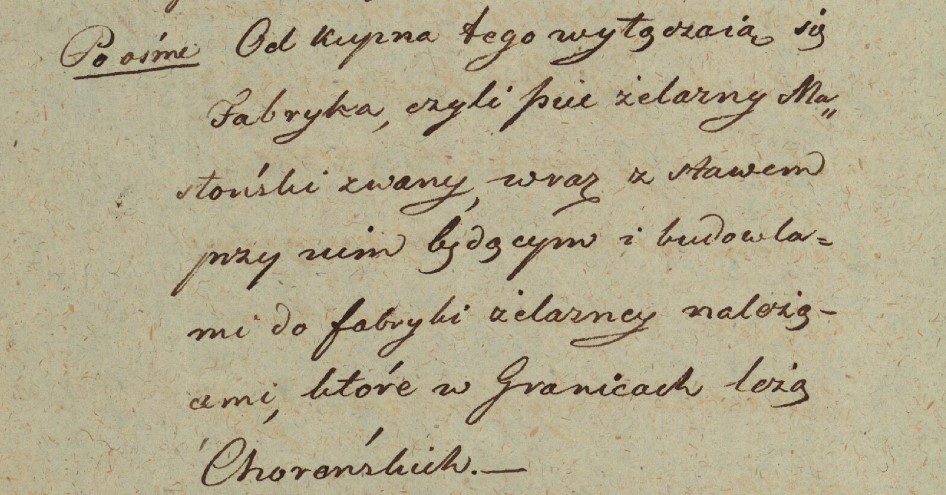 Po ósme Od kupna tego wyłączaią się
Fabryka, czyli piec żelazny Ma„
słoński zwany, wraz z stawem
przy nim będącym i budowla=
mi do fabryki żelazney należą-
cemi, które w Granicach leżą
Choreńskich.—